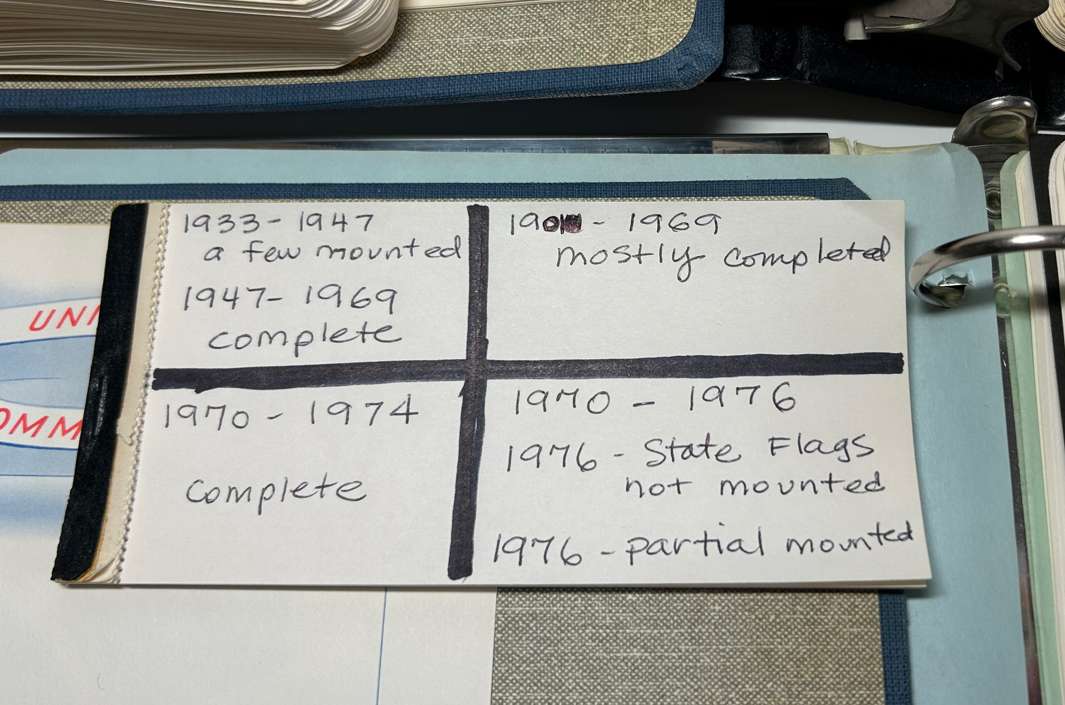 1933 - 1947
a few mounted
1947 - 1969
complete
- 1969
mostly completed
1970 - 1974
complete
1970 - 1976
1976 - State Flags
not mounted
1976 - partial mounted